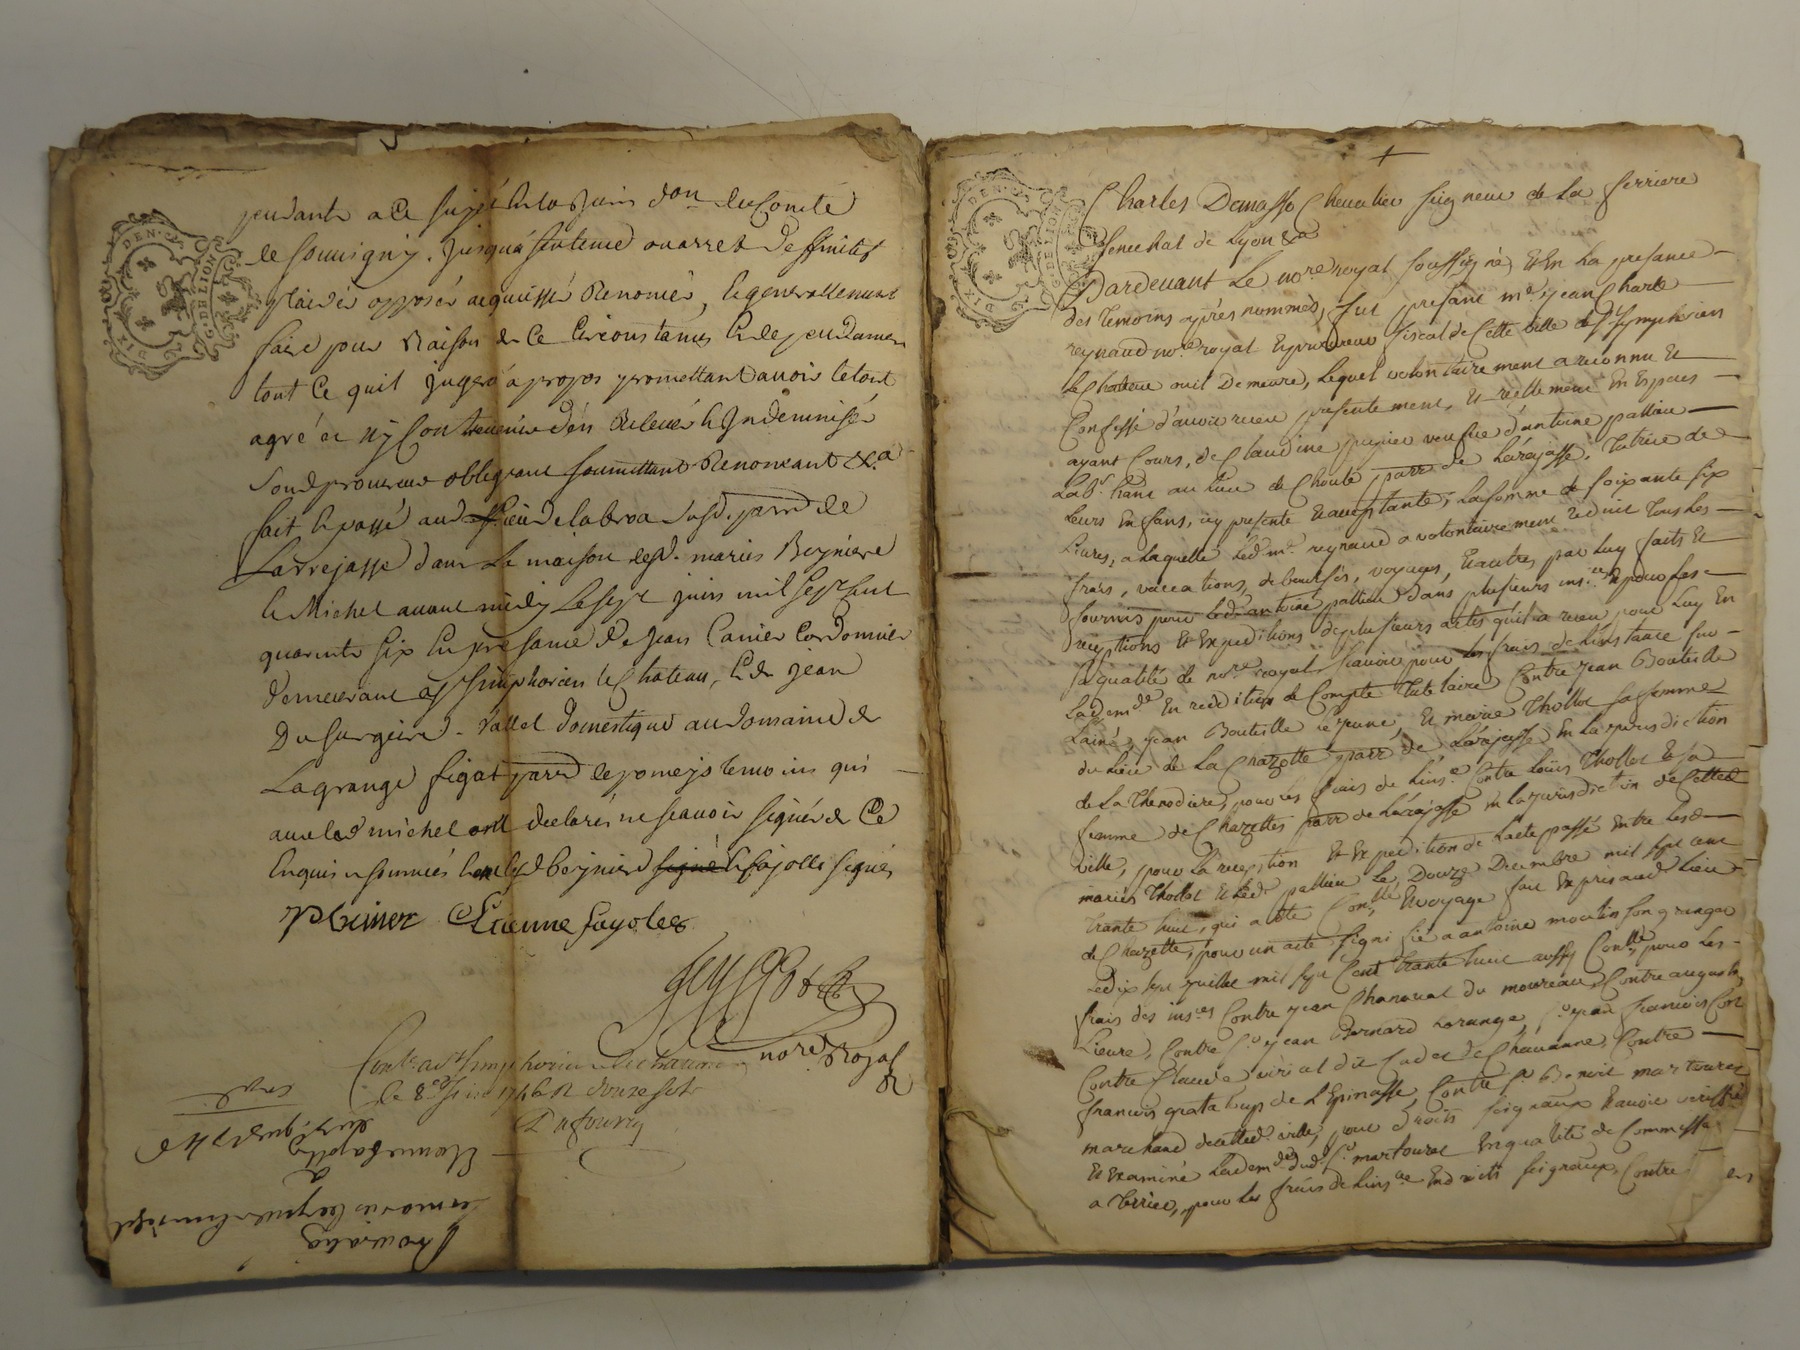 DEN.
G. DE LION
DIX
pendante a ce sujet en la Juris don. du Comté
de Souvigny. Jusqu'a sentence ou arrest deffinitif
plaider opposer acquiesser Renoncer, & generallement
faire pour Raison de Ce Circonstances & dependances
tout Ce quil Jugera a propos promettant avoir le tout
agréé et ny Contrevenir d'en Relever & Indemniser
Sond. procureur obligeant soumettant Renoncant &c.a
fait & passé aud. lieu de la broa susd. parr. de
Larrejasse dans La maison desd. mariés Bergniere
& Michel avant midy Le sept juin mil sept cent
quarante six En presance de Jean Canier Cordonnier
demeurant a St. Simphorien le Chateau, & de jean
Dusurgeire vallet domestique au domaine de
Lagrange figat parr. de pomeys temoins qui
avec lad. michel ont declarés ne scavoir signer de Ce
Enquis & sommés & led. Bergnier & fajolle signés
Etienne fayolle
nore. Royal
Cont. a St. simphorien le chateau
le 8e. Juin 1746 R. douze sols
Dufourny
Procuration
Les mariés bergnier & michel
a
Etienne fajolle
du 7e. juin 1746
DEN.
G. DE LION
DIX
Charles Demasso Chevalier seigneur de La ferriere
senechal de Lyon &a
Pardevant Le nore. royal soussigné, Et En La presance
des temoins après nommés, fut present me. jean Charle
reynaud nore. royal Et procureur fiscal de Cette ville de St. Symphorien
Le Chateau ou il Demeure, Lequel volontairement a reconnu Et
Confessé d'avoir receu presentement, Et réellement En Especes
ayant Cours, de Claudine veufve d'antoine pattieu
Labr. hant. au Lieu de Choute parr. de Larajasse, Tutrice de
Leurs Enfans, icy presente Et acceptante, La somme de soixante six
Livres, a Laquelle Led. me. reynaud a volontairement reduit Tous Les
frais, vaccations, debourses, voyages, Et autres par Luy faits Et
fournis pour Led. antoine pattieu dans plusieurs ins.ces Et pour Les
réceptions Et Expeditions de plusieurs actes quil a receu pour Luy En
sa qualité de nore. royal, scavoir pour Les frais de L'instance sur
La dem.de En reddition de Compte Tutelaire Contre jean Bouteille
L'ainé, jean Bouteille Le jeune, Et marie Thollot sa femme
du Lieu de La Chazette parr. de Larajasse En La jurisdiction
de La Thenodiere, pour les frais de L'ins.ce Contre Loüis Thollot Et sa
femme de Chazettes parr. de Larajasse En La jurisdiction de Cette
ville, pour La reception Et Expedition de L'acte passé Entre Lesd.
mariés Thollot Et Led. pattieu Le Douze Decembre mil sept cent
trante huit, qui a été Contllé Et voyage fait Exprès aud. Lieu
de Chazette, pour un acte signiffié a antoine moulin son granger
Le dix sept juillet mil sept Cent trante huit aussy Contllé, pour Les
frais des ins.ces Contre jean Chanavat du moureau, Contre augustin
Lieure, Contre Sr. jean Bernard Lorange, Sr. jean francois
Contre Claude virial dit Cadet de Chavanne, Contre
francois grataloup de L'Espinasse, Contre Sr. Benoit martouret
marchand de Cetted. ville, pour droits seigneaux Et avoir veriffié
Et Examiné La dem.de dud. Sr. martouret En qualité de Commissre.
a Terrier, pour Les frais de L'ins.ce En droits seigneaux Contre